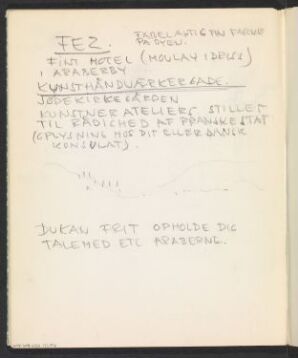 FEZ.
FABELAGTIG FIN FARVE
PÅ BYEN.
FINT HOTEL (MOULAY IDRISS)
I ARABERBY
KUNSTHÅNDVÆRKERGADE.
JØDEKIRKEGÅRDEN
KUNSTNER ATELIERS STILLET
TIL RÅDIGHED AF FRANSKE STAT
(OPLYSNING HOS DIT ELLER DANSK
KONSULAT).
DU KAN FRIT OPHOLDE DIG
TALE MED ETC ARABERNE.